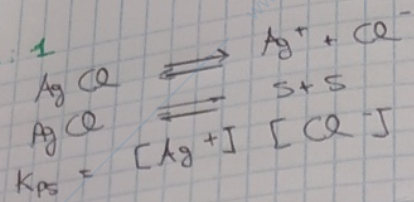 1
AgCl ⇌ Ag⁺ + Cl⁻
AgCl ⇌ s + s
Kps = [Ag⁺] [Cl⁻]